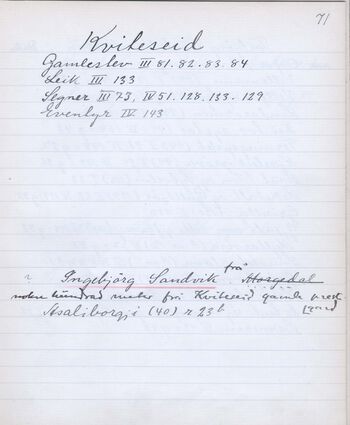 71
Kviteseid
Gamleslev III 81. 82. 83. 84
Leik III 133
Segner III 73, IV 51. 128. 133. 129
Evenlyr IV 143
frå
Ingebjörg Sandvik Morgedal
noken hundrad meter frå Kviteseid gamle prest
gard
Asaliborgji (40) r 23b